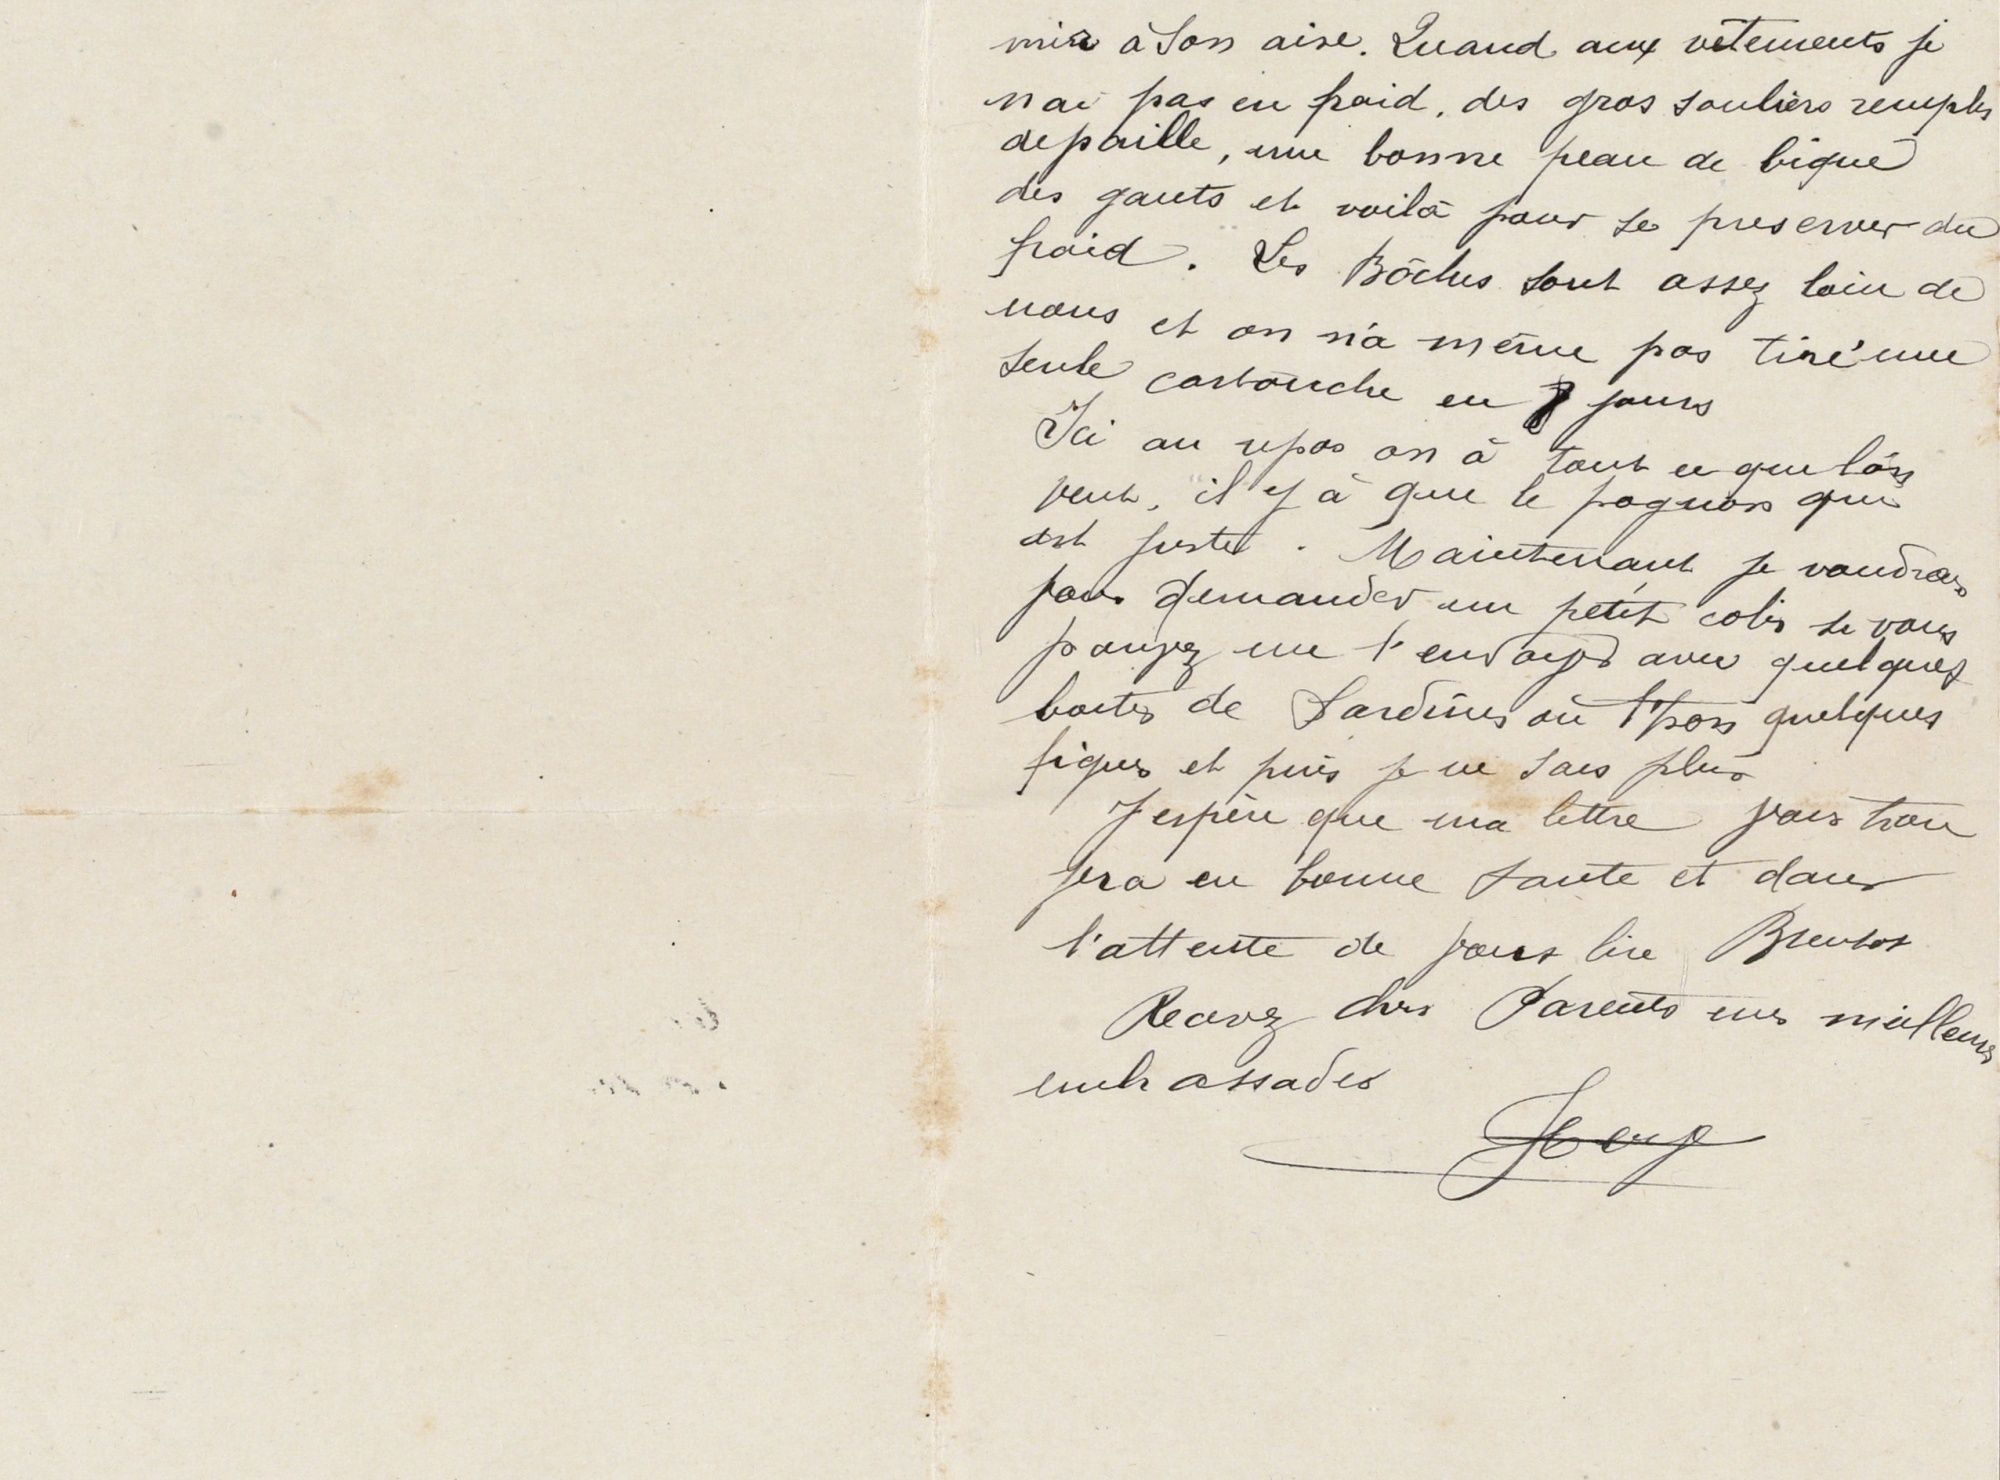 mir à son aise. Quand aux vêtements je
nai pas eu froid, des gros souliers remplis
depaille, une bonne peau de bique
des gants et voilà pour se preserver du
froid. Les Bôches sont assez loin de
nous et on n'a même pas tiré une
seule cartouche en 8 jours
Ici au repos on à tout ce que lòn
veut, il y à que le pognon qui
est juste. Maintenant je voudrais
vous demander un petit colis si vous
pouvez me l'envoyer avec quelques
boites de Sardines ou Thon quelques
figues et puis je ne sais plus
J espère que ma lettre vous trou
vera en bonne sante et dans
l'attente de vous lire Bientot
Recevez chers Parents mes meilleurs
embrassades